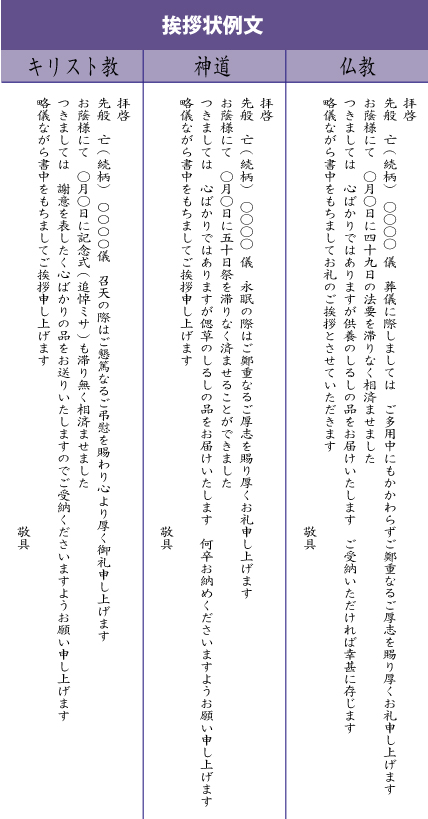 挨拶状例文
仏教
拝啓
先般 亡(続柄) 〇〇〇〇 儀 葬儀に際しましては ご多用中にもかかわらずご鄭重なるご厚志を賜り厚くお礼申し上げます
お蔭様にて 〇月〇日に四十九日の法要を滞りなく相済ませました
つきましては 心ばかりではありますが供養のしるしの品をお届けいたします ご受納いただければ幸甚に存じます
略儀ながら書中をもちましてお礼のご挨拶とさせていただきます
敬具
神道
拝啓
先般 亡(続柄) 〇〇〇〇 儀 永眠の際はご鄭重なるご厚志を賜り厚くお礼申し上げます
お蔭様にて 〇月〇日に五十日祭を滞りなく済ませることができました
つきましては 心ばかりではありますが偲草のしるしの品をお届けいたします 何卒お納めくださいますようお願い申し上げます
略儀ながら書中をもちましてご挨拶申し上げます
敬具
キリスト教
拝啓
先般 亡(続柄) 〇〇〇〇儀 召天の際はご懇篤なるご弔慰を賜わり心より厚く御礼申し上げます
お蔭様にて 〇月〇日に記念式(追悼ミサ)も滞り無く相済ませました
つきましては 謝意を表したく心ばかりの品をお送りいたしますのでご受納くださいますようお願い申し上げます
略儀ながら書中をもちましてご挨拶申し上げます
敬具